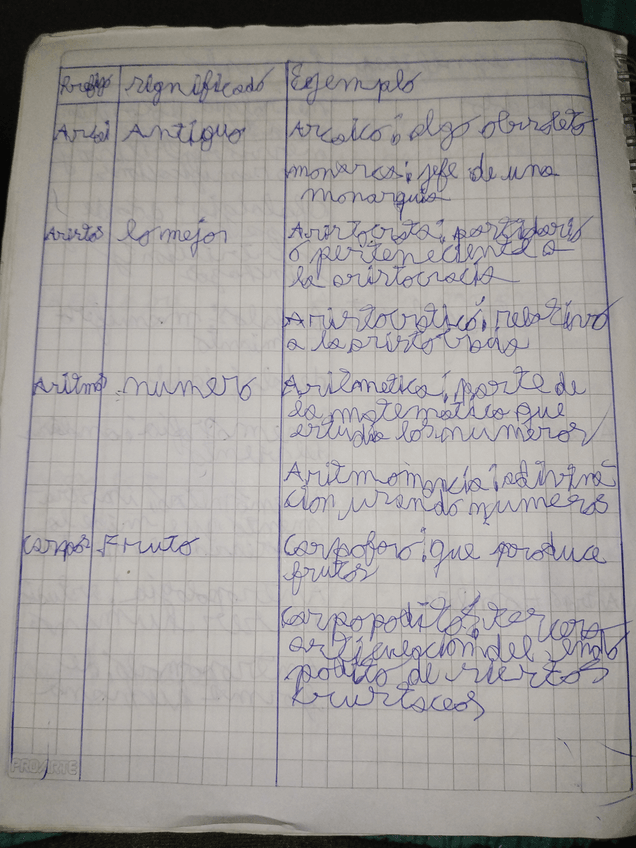 Prefijo significado Ejemplo
Arcai Antiguo Arcaico; algo obsoleto
monarca; jefe de una
monarquia
Aristos lo mejor Aristocrata; partidario
o perteneciente a
la aristocracia
Aristocratico; relativo
a la aristocracia
Aritmo numero Aritmetica; parte de
la matematica que
estudia los numeros
Aritmomancia; adivina
cion usando numeros
Carpos Fruto Carpoforo; que produce
frutos
Carpopodito; tercera
articulacion del endo
podito de ciertos
crustaceos
PROARTE